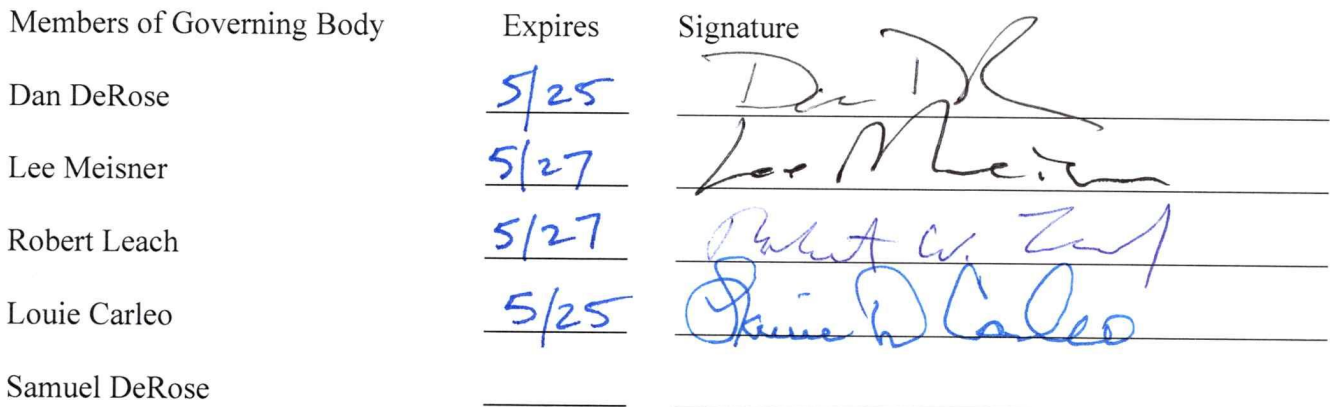 Members of Governing Body Expires Signature
Dan DeRose 5/25 Dan DR
Lee Meisner 5/27 Lee Meisner
Robert Leach 5/27 Robert W. Leach
Louie Carleo 5/25 Louie D Carleo
Samuel DeRose